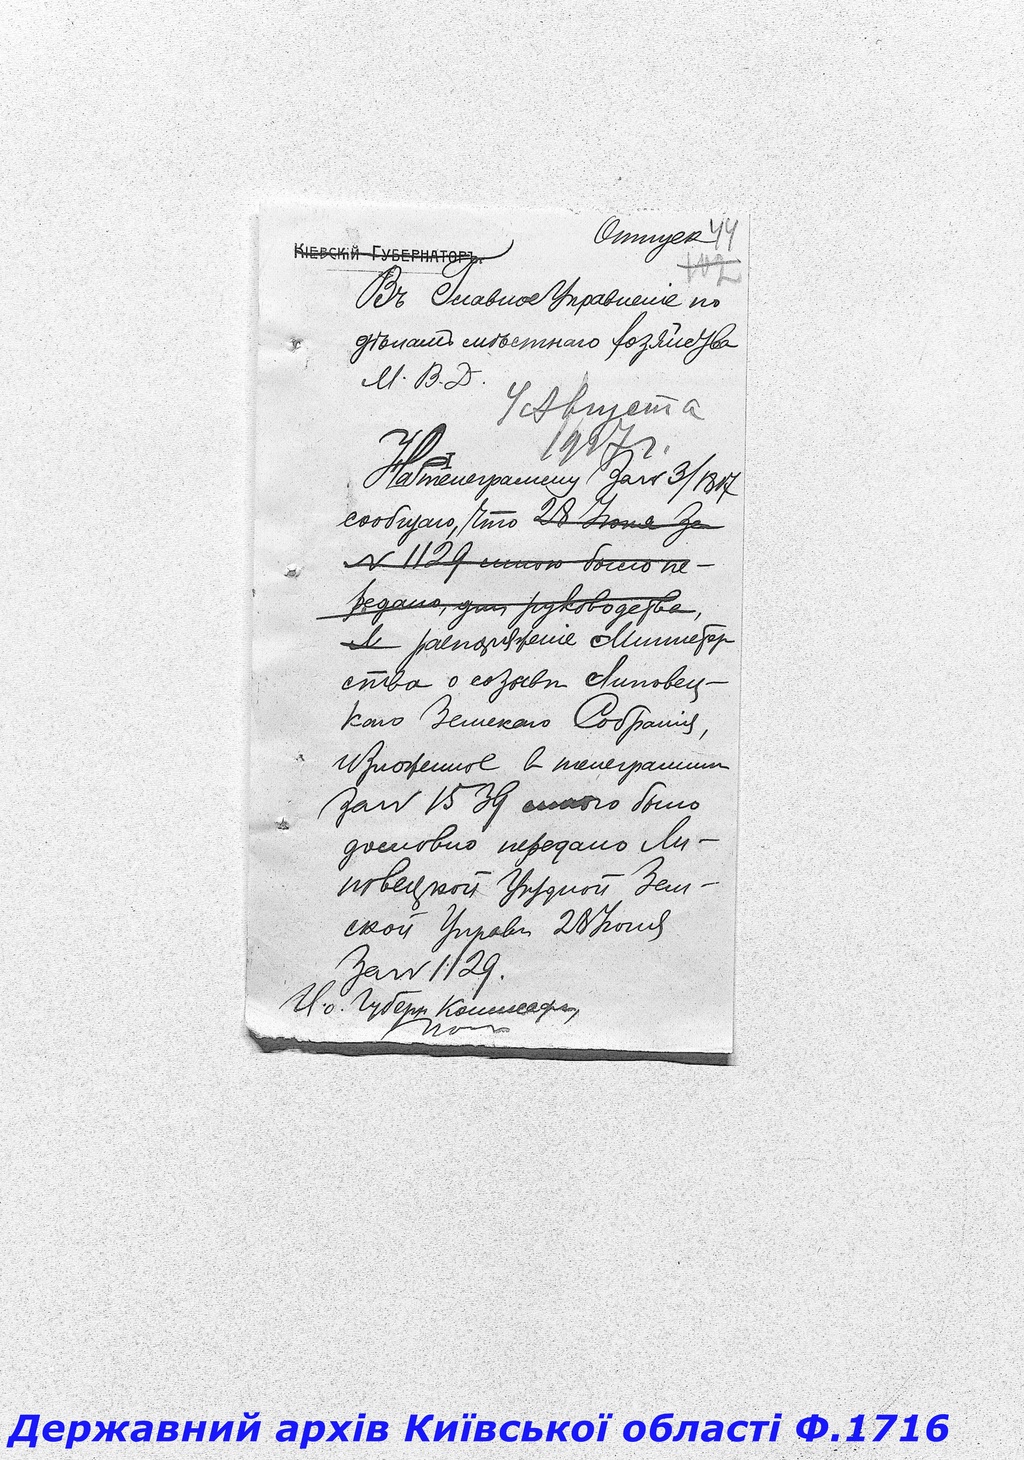 Отпуск 44
102
Кіевскій Губернаторъ.
Въ Главное Управленіе по
дѣламъ мѣстнаго хозяйства
М. В. Д.
4 Августа
1917 г.
На телеграмму за №3/1317
сообщаю, что 28 Июня за
№ 1129 мною было пе-
редано, для руководства,
распоряженіе Министер
ства о созыве Липовец-
каго Земскаго Собранія,
изложенное в телеграмме
за № 1539 было
дословно передано Ли-
повецкой Уездной Зем-
ской Управе 28 Июня
за № 1129.
И. о. Губерн Комиссара,
Державний архів Київської області Ф.1716